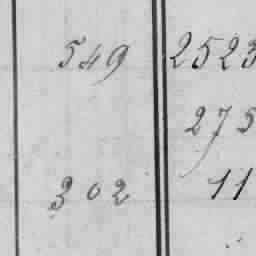 549 2523
275
302 11